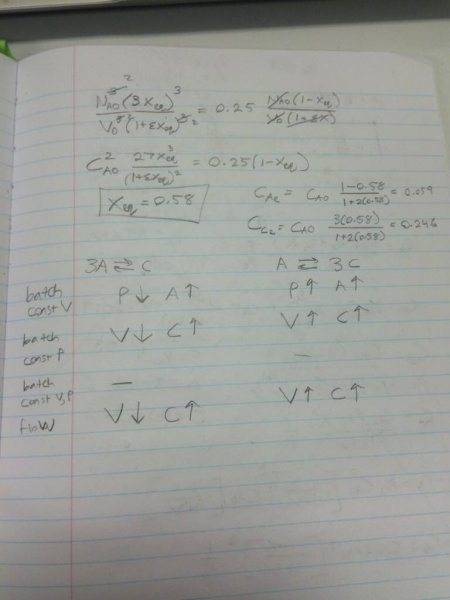 N_A0^3 2 (3X_eq)^3 / V_0^3 2 (1+εX_eq)^3 2 = 0.25 N_A0(1-X_eq) / V_0(1+εX)
C_A0^2 27X_eq^3 / (1+εX_eq)^2 = 0.25(1-X_eq)
X_eq = 0.58
C_Ae = C_A0 1-0.58 / 1+2(0.58) = 0.039
C_Ce = C_A0 3(0.58) / 1+2(0.58) = 0.246
3A ⇌ C A ⇌ 3C
batch const V P↓ A↑ P↑ A↑
batch const P V↓ C↑ V↑ C↑
batch const V,P — —
flow V↓ C↑ V↑ C↑